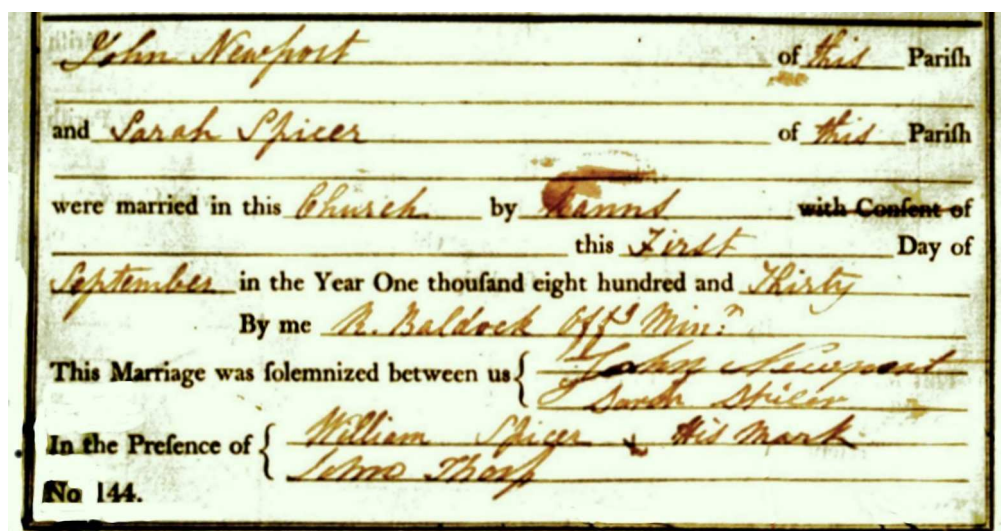 John Newport of this Pariſh
and Sarah Spicer of this Pariſh
were married in this Church by Banns with Conſent of
this First Day of
September in the Year One thouſand eight hundred and Thirty
By me R. Baldock Offg Minr
This Marriage was ſolemnized between us { John Newport
Sarah Spicer
In the Preſence of { William Spicer x His Mark
Thorp
No 144.